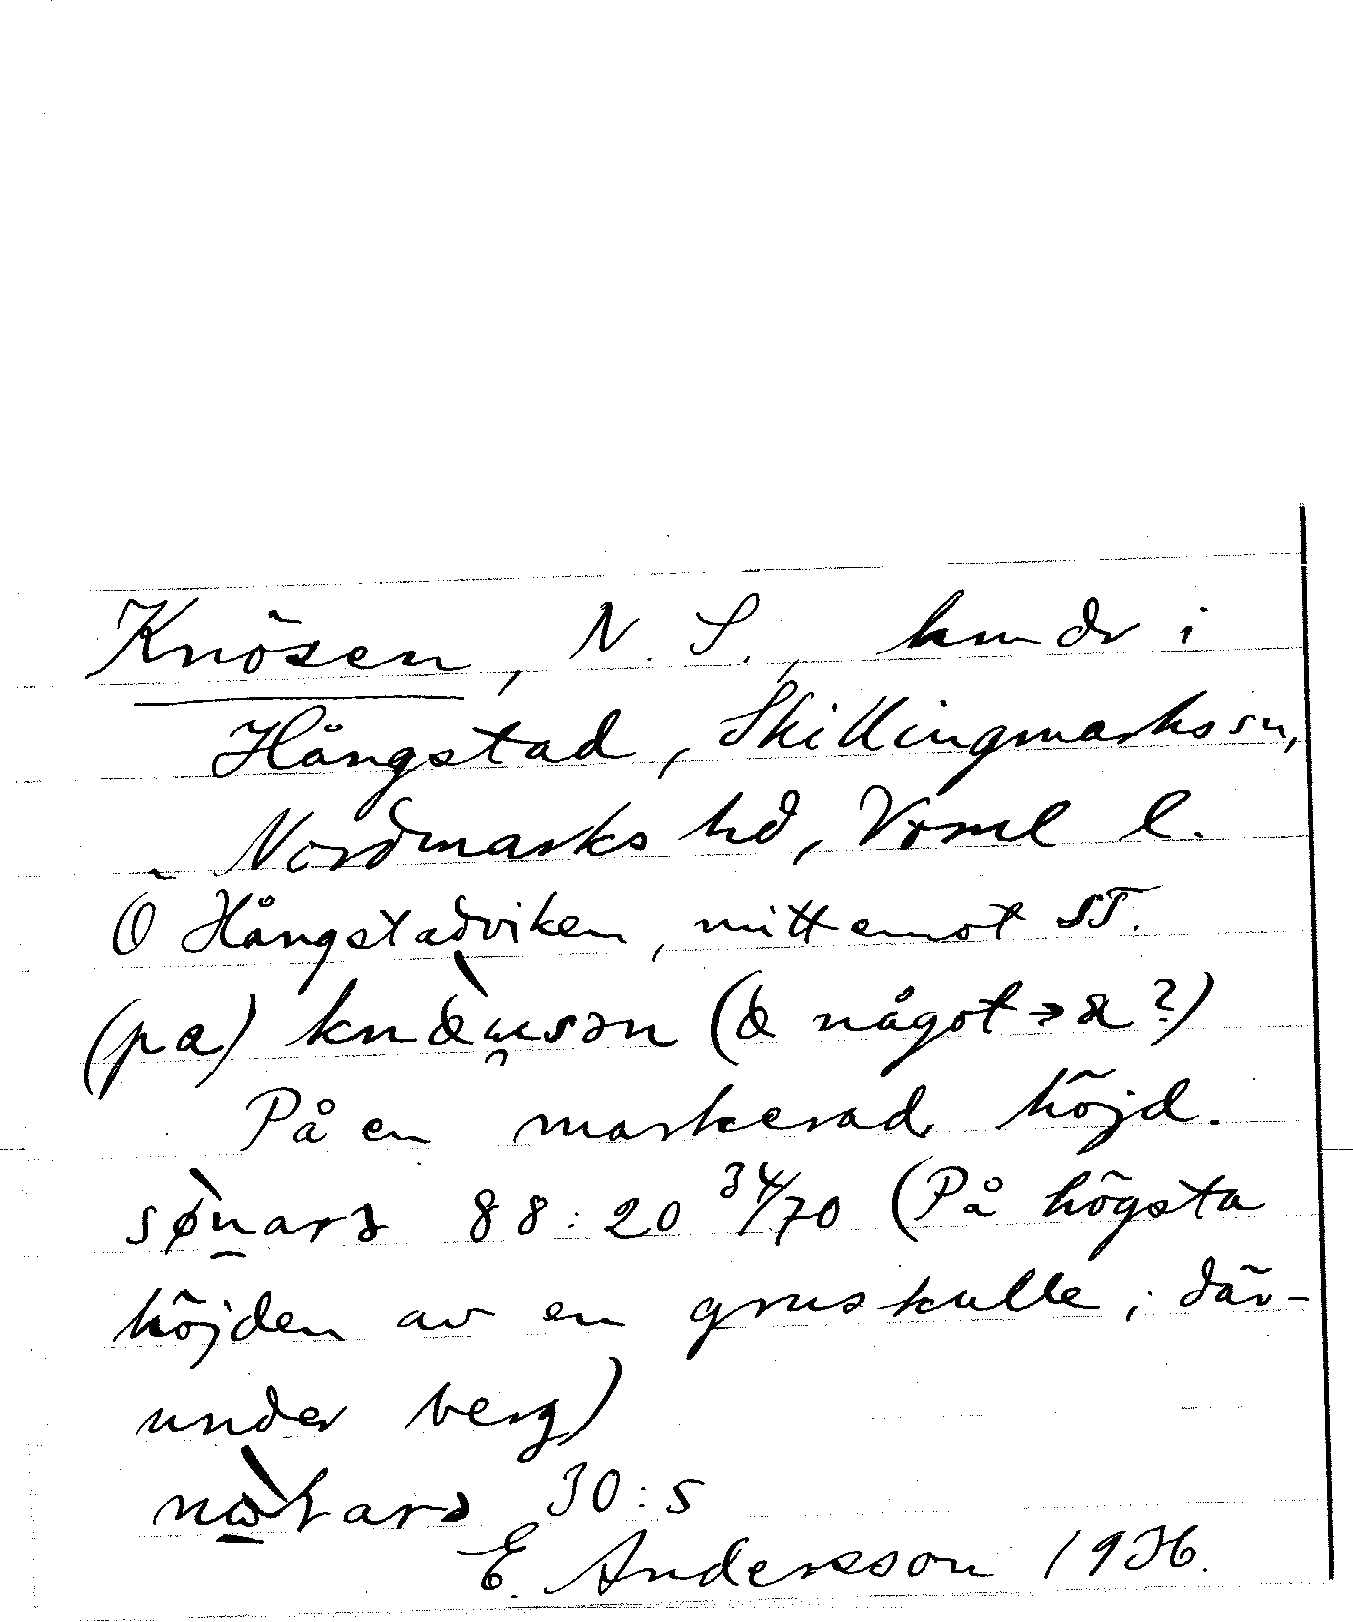 Knösen, N. S., hmdr i
Hångstad, Skillingmarks sn,
Nordmarks hd, Vrml l.
Ö Hångstadviken, mitt emot ST.
(pa) (något → ?)
På en markerad höjd.
88:20 34/70 (På högsta
höjden av en gruskulle; där-
under berg)
30:5
E. Andersson 1936.